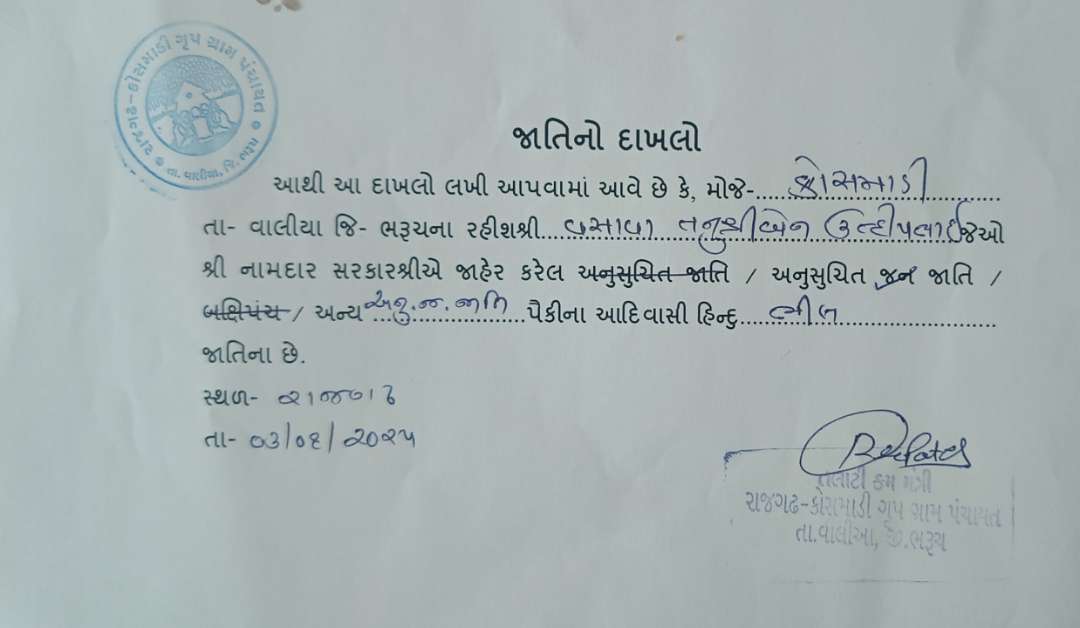 રાજગઢ-કોસમાડી ગૃપ ગ્રામ પંચાયત
તા. વાલીયા, જિ. ભરૂચ
જાતિનો દાખલો
આથી આ દાખલો લખી આપવામાં આવે છે કે, મોજે-કોસમાડી
તા- વાલીયા જિ- ભરૂચના રહીશશ્રી વસાવા તનુશ્રીબેન ઉન્દીપભાઈ જેઓ
શ્રી નામદાર સરકારશ્રીએ જાહેર કરેલ અનુસુચિત જાતિ / અનુસુચિત જન જાતિ /
બક્ષિપંચ / અન્ય અનુ.જ.જાતિ પૈકીના આદિવાસી હિન્દુ ભીલ
જાતિના છે.
સ્થળ- રાજગઢ
તા- ૦૩/૦૬/૨૦૨૫
તલાટી કમ મંત્રી
રાજગઢ-કોસમાડી ગૃપ ગ્રામ પંચાયત
તા.વાલીઆ, જી.ભરૂચ